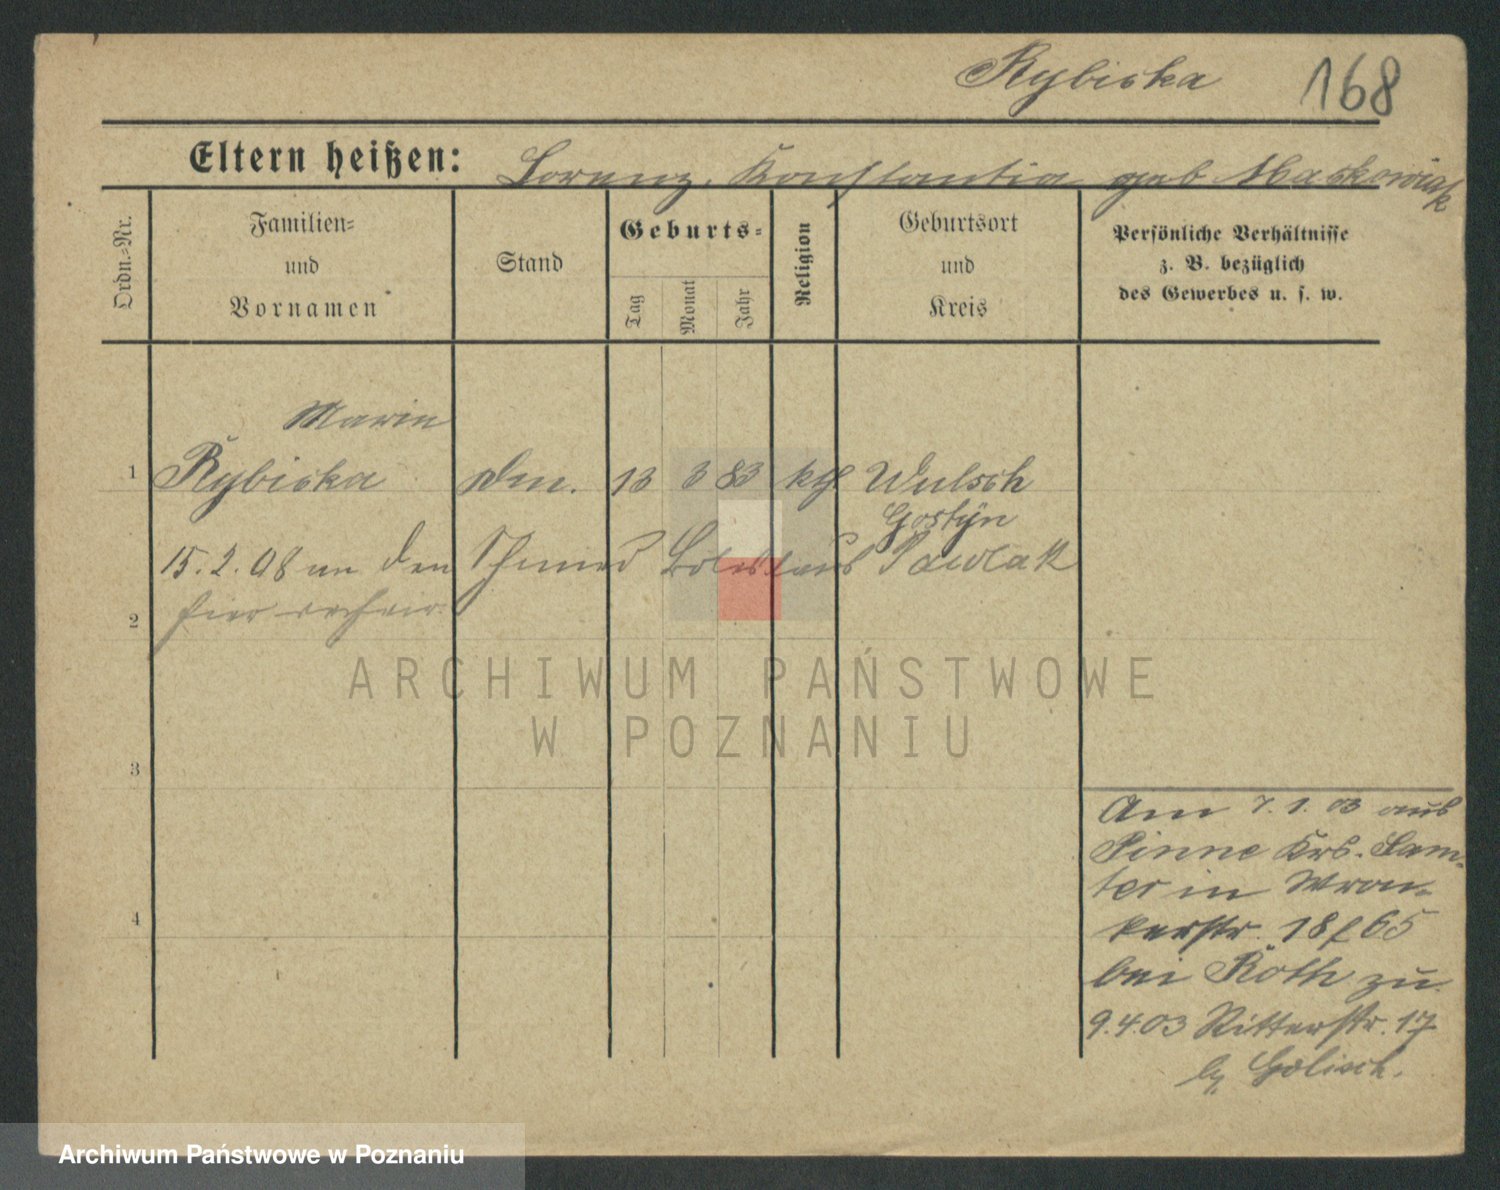 Rybicka 168
Eltern heißen: Lorenz, Konstantia geb Maskowiak
Ordn.=Nr.
Familien=
und
Vornamen
Stand
Geburts=
Tag
Monat
Jahr
Religion
Geburtsort
und
Kreis
Persönliche Verhältnisse
z. B. bezüglich
des Gewerbes u. s. w.
Marie
1 Rybicka 13 3 83 kth Wulsch
Gostyn
15.2.08 an den Schmied Boleslaus Pawlak
2 hier
3
4
Am 7.1.03 aus
Pinne Krs. Sam-
ter in Wron-
kerstr. 18 f 65
bei Roth zu.
9.4.03 Ritterstr. 17
b/ Golisch.
ARCHIWUM PAŃSTWOWE
W POZNANIU
Archiwum Państwowe w Poznaniu